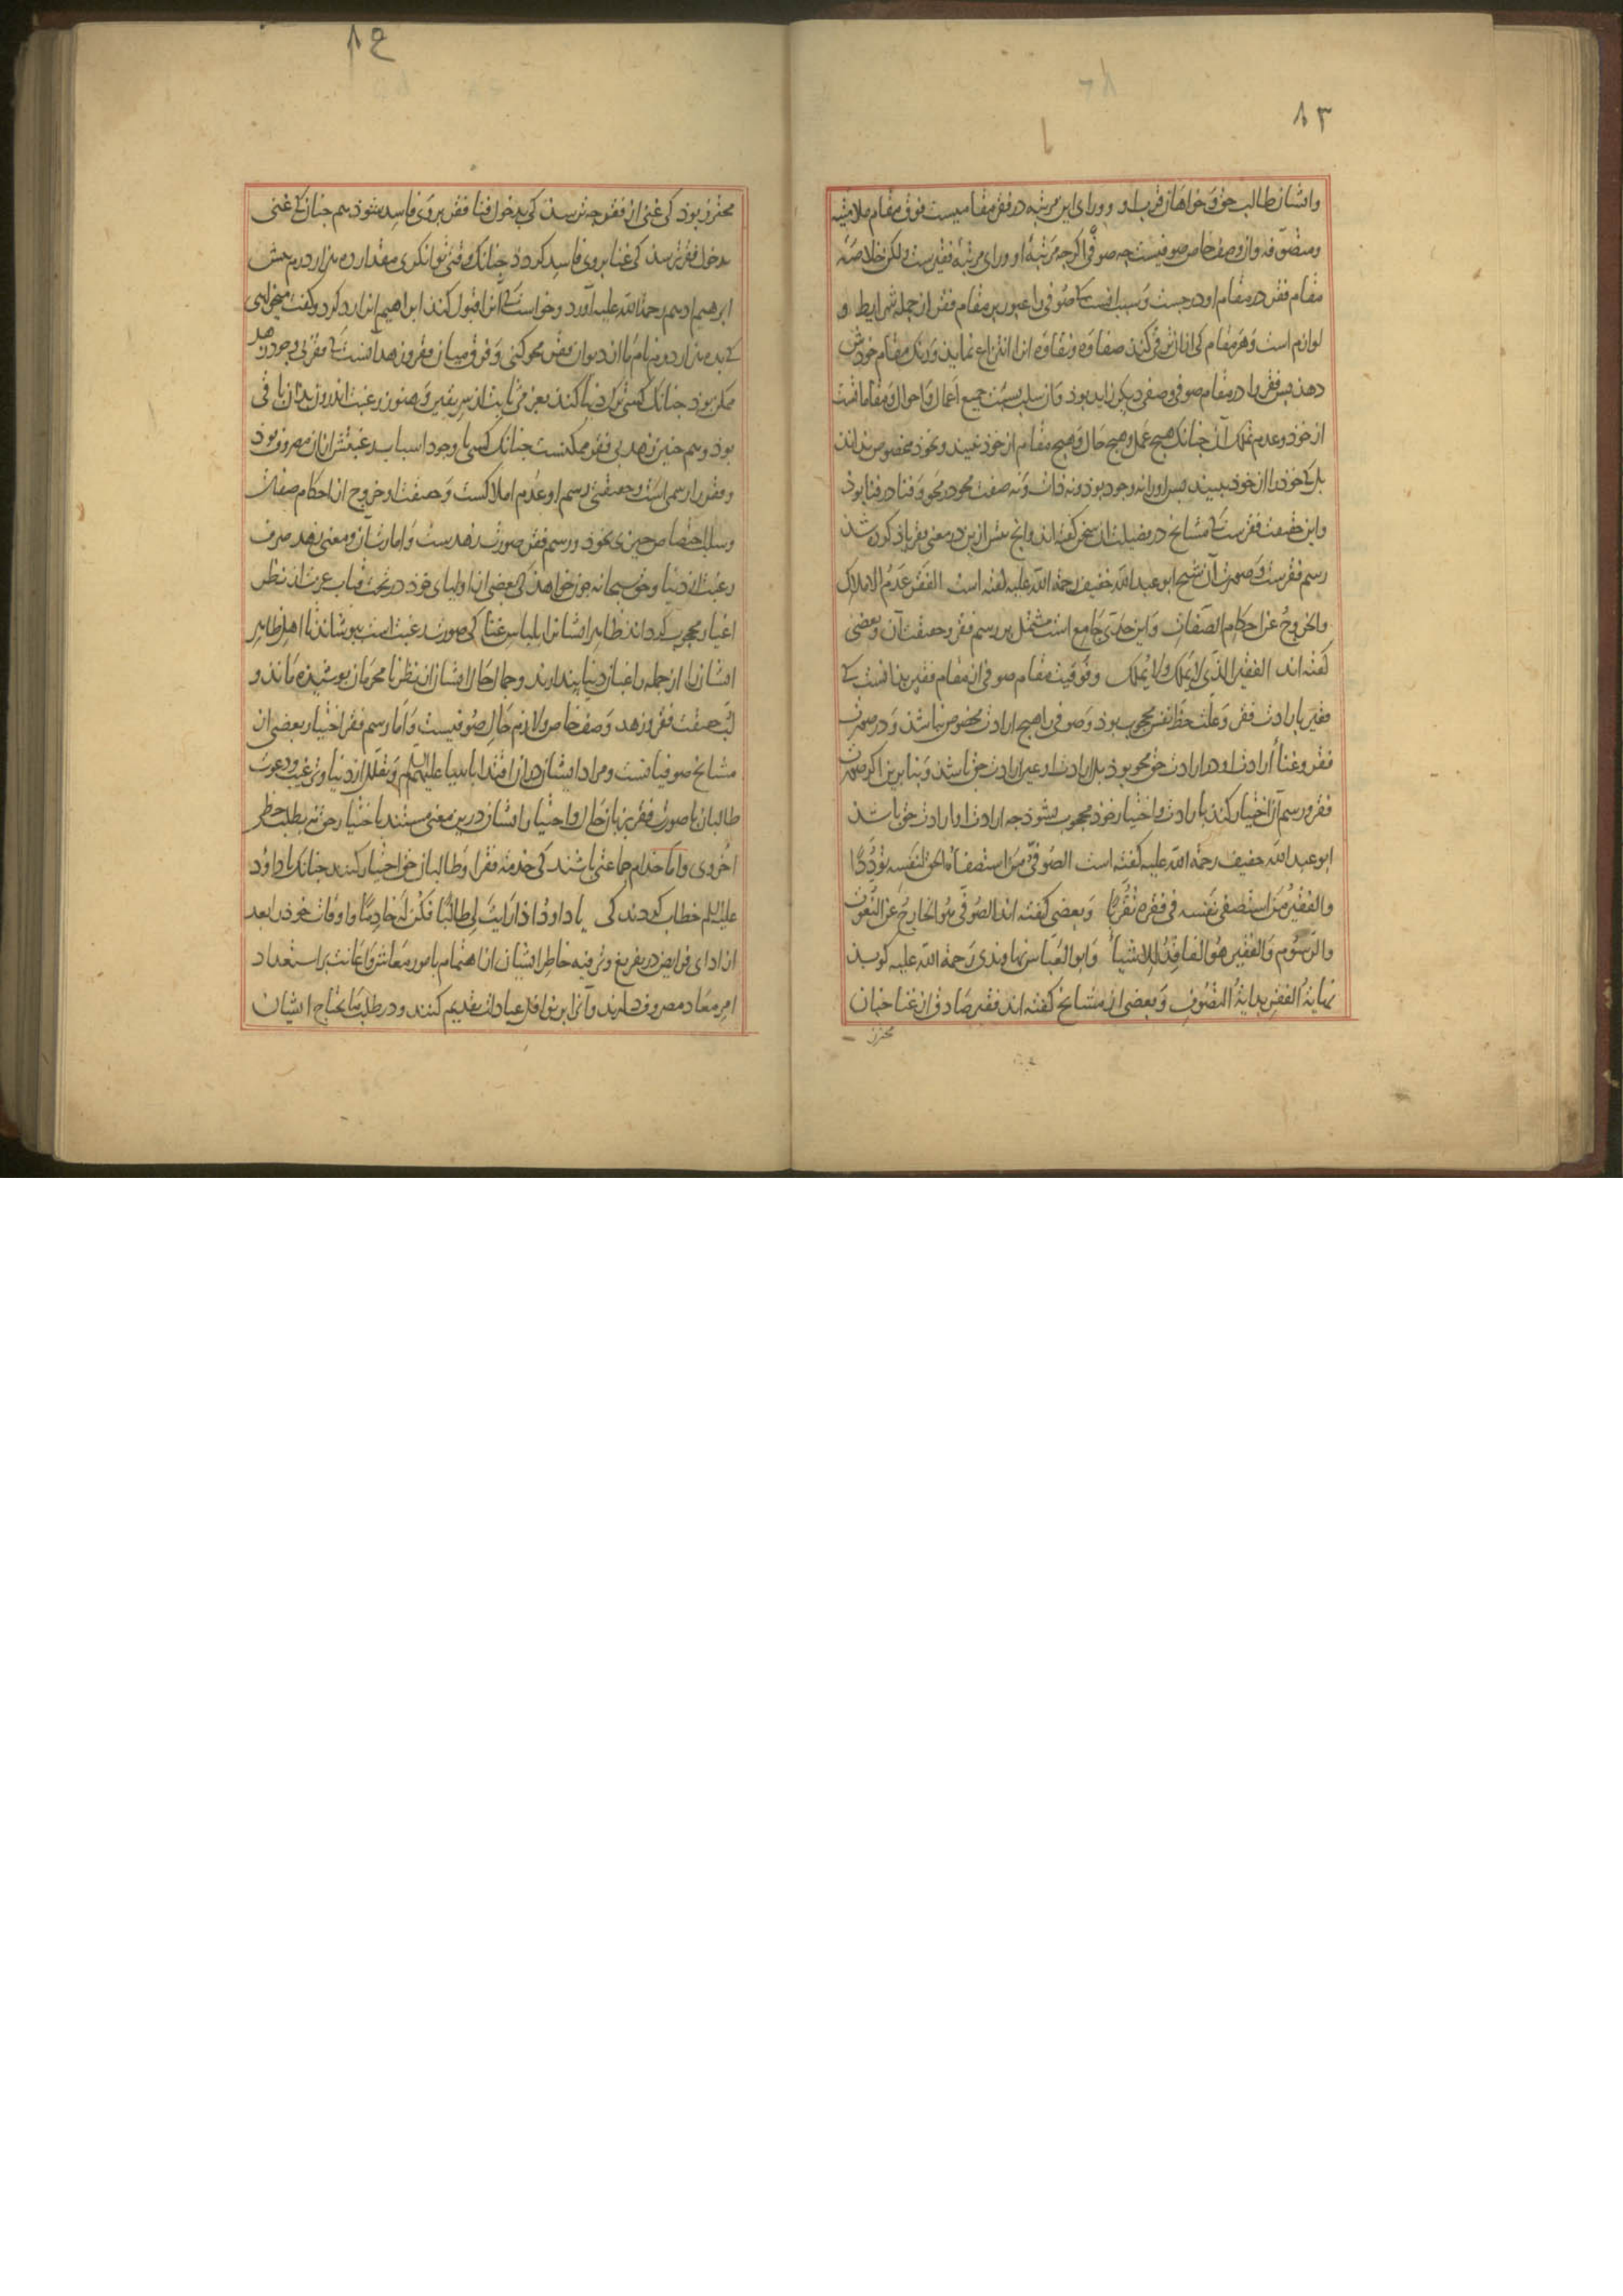 ٨٣
و ایشان طالب حق و خواهان قرب او و ورای این مرتبه در فقر مقامیست فوق مقام ملامتیه
و متصوفه و آن وصف خاص صوفیست چه صوفی اکرچه مرتبهٔ او ورای مرتبهٔ فقیرست ولکن خلاصهٔ
مقام فقر در مقام او درجست و سبب انست که صوفی را عبور بر مقام فقر از جمله شرایط و
لوازم است و هر مقام کی از ان ترقی کند صفاوه و نقاوه انرا انتزاع نماید و رنک مقام خودش
دهد بس فقر را در مقام صوفی وصفی دیکر زاید بود و ان سلب نسبت جمیع اعمال و احوال و مقاماتست
از خود و عدم تملک آن جنانک هیچ عمل و هیچ حال و هیچ مقام از خود نبیند و بخود مخصوص نداند
بل که خود را از خود نبیند بس او را نه وجود بود و نه ذات و نه صفت محو در محو و فنا در فنا بود
و این حقیقت فقرست که مشایخ در فضیلت ان سخن کفته اند و انچ بیش ازین در معنی فقر یاد کرده شد
رسم فقرست و صورت آن شیخ ابو عبد الله خفیف رحمة الله علیه کفته است الفقر عدم الاملاک
والخروج عن احکام الصفات و این حدی جامع است مشتمل بر رسم فقر و حقیقت آن و بعضی
کفته اند الفقیر الذی لا یملک و لا یملک و فوقیت مقام صوفی از مقام فقیر بدانست که
فقیر بارادت فقر و علت حظ نفس محجوب بود و صوفی را هیچ ارادت مخصوص نباشد و در صورت
فقر و غنا أرادت او در ارادت حق محو بود بل ارادت او عین ارادت حق باشد و بنا برین اکر صورت
فقر و رسم آن اختیار کند بارادت و اختیار خود محجوب نشود جه ارادت او ارادت حق باشد
ابو عبد الله خفیف رحمة الله علیه کفته است الصوفی من استصفاه الحق لنفسه توددا
والفقیر من استصفی نفسه فی فقره تقربا و بعضی کفته اند الصوفی هو الخارج عن النعوت
والرسوم والفقیر هو الفاقد للاشیاء و ابو العباس نهاوندی رحمة الله علیه کوید
نهایة الفقر بدایة التصوف و بعضی از مشایخ کفته اند فقیر صادق از غنا جنان
محترز
٨٤
محترز بود کی غنی از فقر جه ترسد کی بدخول غنا فقر بر وی فاسد شود هم جنان که غنی
بدخول فقر ترسد کی غنا بر وی فاسد کردد جنانک وقتی توانکری مقدار ده هزار درم بیش
ابرهیم ادهم رحمة الله علیه آورد و خواست که آنرا قبول کند ابراهیم انرا رد کرد و کفت میخواهی
که بده هزار درم نام ما از دیوان فقر محو کنی و فرق میان فقر و زهد آنست که فقر بی وجود زهد
ممکن بود جنانک کسی ترک دنیا کند بعزمی ثابت از سر یقین و هنوز رغبت اندرون بدان باقی
بود و هم جنین زهد بی فقر ممکنست جنانک کسی با وجود اسباب رغبتش از ان مصروف بود
و فقر را رسمی است و حقیقتی رسم او عدم املاکست و حقیقت او خروج از احکام صفات
و سلب اختصاص جیزی بخود و رسم فقر صورت زهدست و امارت آن و معنی زهد صرف
رغبت از دنیا و حق سبحانه جون خواهد کی بعضی از اولیای خود در تحت قباب عزت از نظر
اغیار محجوب کرداند ظاهر ایشانرا بلباس غنا کی صورت رغبت است بپوشاند تا اهل ظاهر
ایشانرا از جمله راغبان دنیا پندارند و جمال حال ایشان از نظر نامحرمان بوشیده ماند و
این حقیقت فقر و زهد وصف خاص و لازم حال صوفیست و اما رسم فقر اختیار بعضی از
مشایخ صوفیانست و مراد ایشان در ان اقتدا بانبیا علیهم السلم و تقلل از دنیا و ترغیب و دعوت
طالبان با صورت فقر بزبان حال و اختیار ایشان درین معنی مستند باختیار حق نه بطلب حظ
اخروی و اما خدام جماعتی باشند کی خدمة فقرا و طالبان حق اختیار کنند جنانک با داود
علیه السلم خطاب کردند کی یا داود اذا رایت لی طالبا فکن له خادما و اوقات خود را بعد
از ادای فرایض در تفریغ و ترفیه خاطر ایشان از اهتمام بامور معاش و اعانت بر استعداد
امر معاد مصروف دارند و آنرا بر نوافل عبادات تقدیم کنند و در طلب مایحتاج ایشان